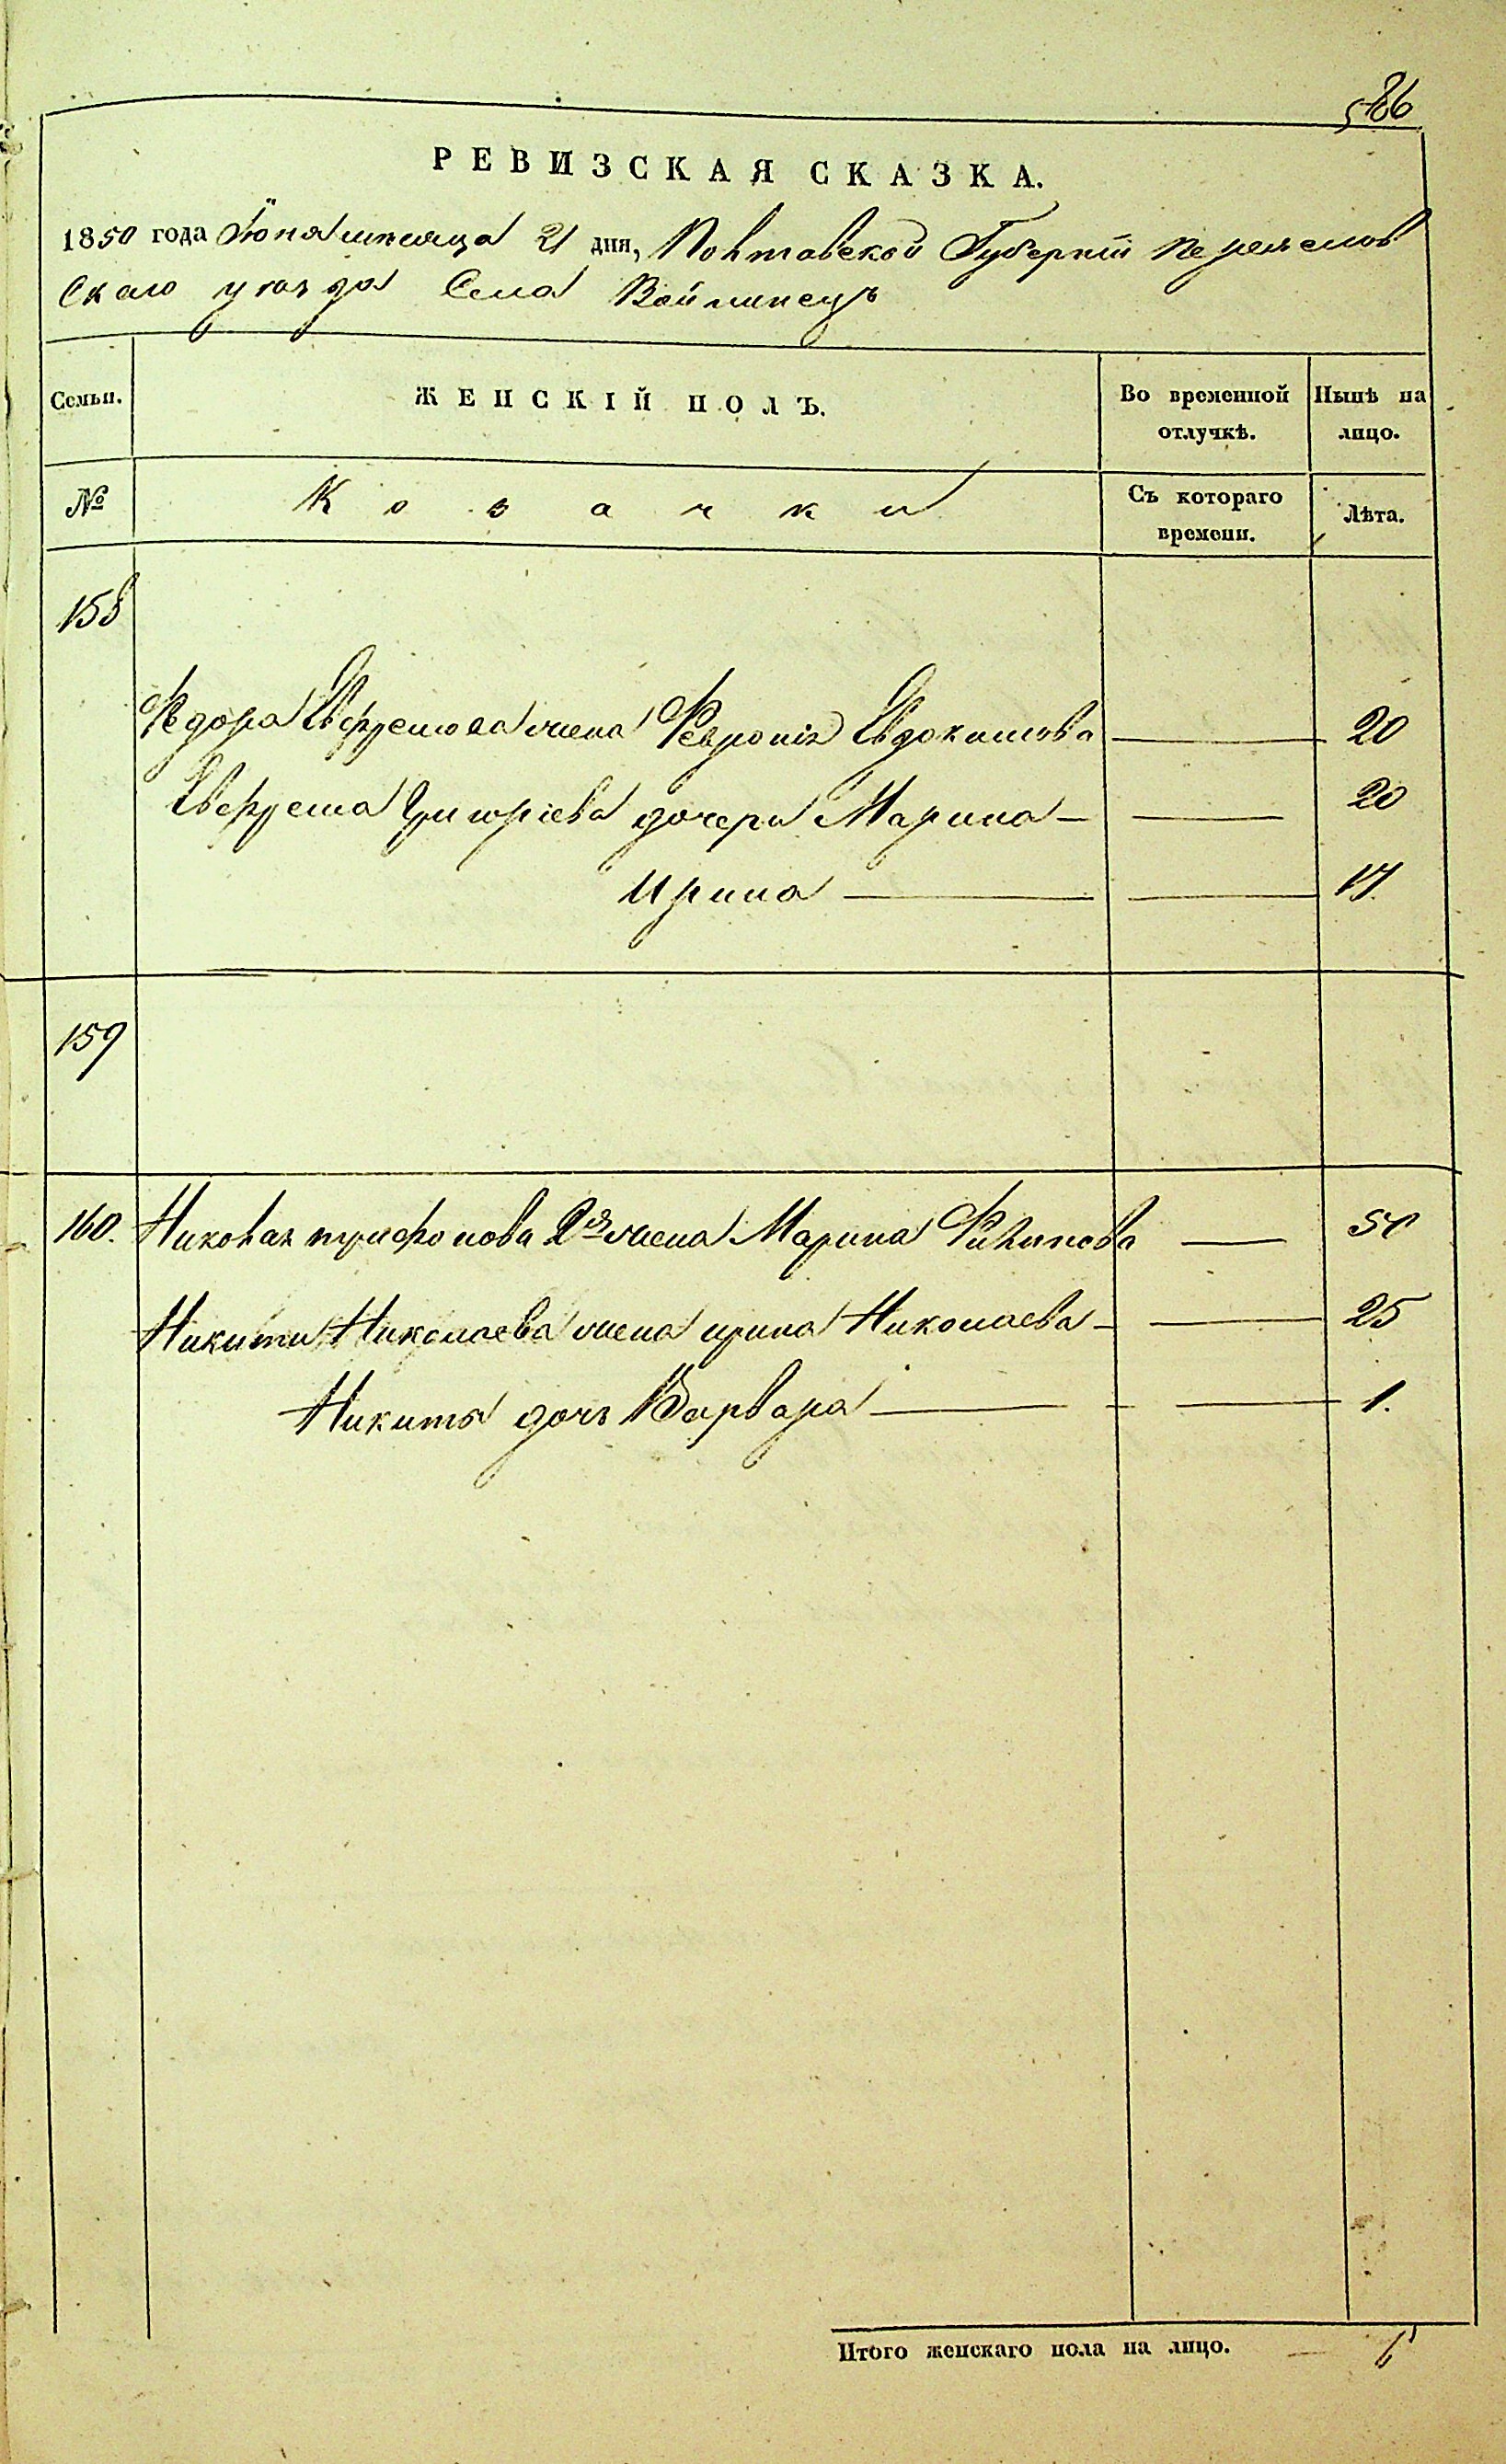 586
РЕВИЗСКАЯ СКАЗКА.
1850 года Іюня мѣсяца 21 дня, Полтавской Губерніи Переяслов
Скаго уѣзда Села Войтинецъ
Семьи. ЖЕНСКІЙ ПОЛЪ. Во временной отлучкѣ. Нынѣ на лицо.
№ Козачки Съ котораго времени. Лѣта.
158
Федора Евфремова жена Февронія Евдокимова 20
Евфрема Григоріева дочери Марина 20
Ирина 17
159
160. Николая трифонова 2я жена Марина Филипова 50
Никиты Николаева жена ирина Николаева 25
Никиты дочь Варвара 1.
Итого женскаго пола на лицо. 6